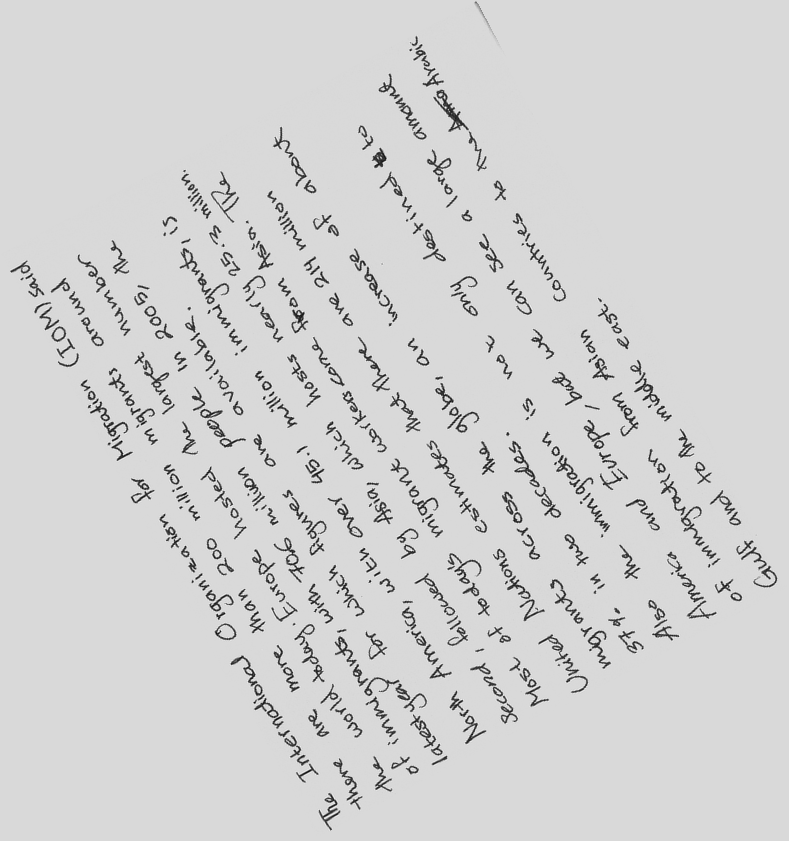 The International Organization for Migration (IOM) said
there are more than 200 million migrants around
the world today. Europe hosted the largest number
of immigrants, with 70.6 million people in 2005, the
latest year for which figures are available.
North America, with over 45.1 million immigrants, is
second, followed by Asia, which hosts nearly 25.3 million.
Most of today's migrant workers come from Asia. The
United Nations estimates that there are 214 million
migrants across the globe, an increase of about
37% in two decades.
Also the immigration is not only destined to
America and Europe, but we can see a large amount
of immigration from Asian countries to the Arabic
Gulf and to the middle east.